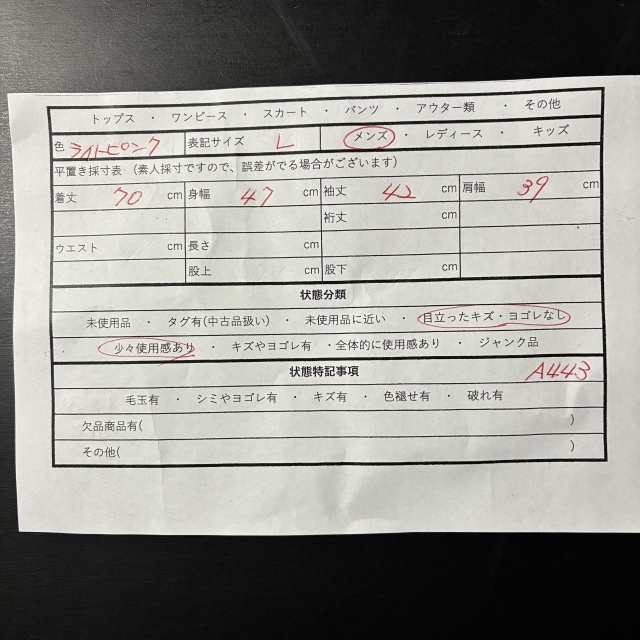 トップス ・ ワンピース ・ スカート ・ パンツ ・ アウター類 ・ その他
色 ライトピンク 表記サイズ L メンズ ・ レディース ・ キッズ
平置き採寸表 （素人採寸ですので、誤差がでる場合がございます）
着丈 70 cm 身幅 47 cm 袖丈 42 cm 肩幅 39 cm
裄丈 cm
ウエスト cm 長さ cm
股上 cm 股下 cm
状態分類
未使用品 ・ タグ有(中古品扱い) ・ 未使用品に近い ・ 目立ったキズ・ヨゴレなし
・ 少々使用感あり ・ キズやヨゴレ有 ・全体的に使用感あり ・ ジャンク品
状態特記事項 A443
毛玉有 ・ シミやヨゴレ有 ・ キズ有 ・ 色褪せ有 ・ 破れ有
欠品商品有( )
その他( )